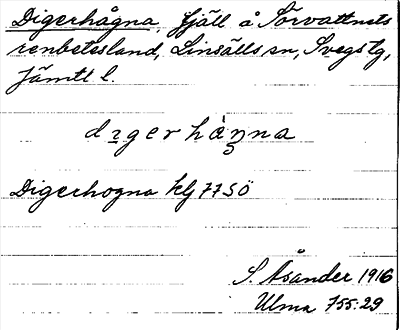 Digerhågna, fjäll å Sörvattnets
renbetesland, Linsälls sn, Svegs tg,
Jämtl l.
dıgerhàŋna
Digerhogna klj 77 SÖ
S. Åsander 1916
Ulma 755:29